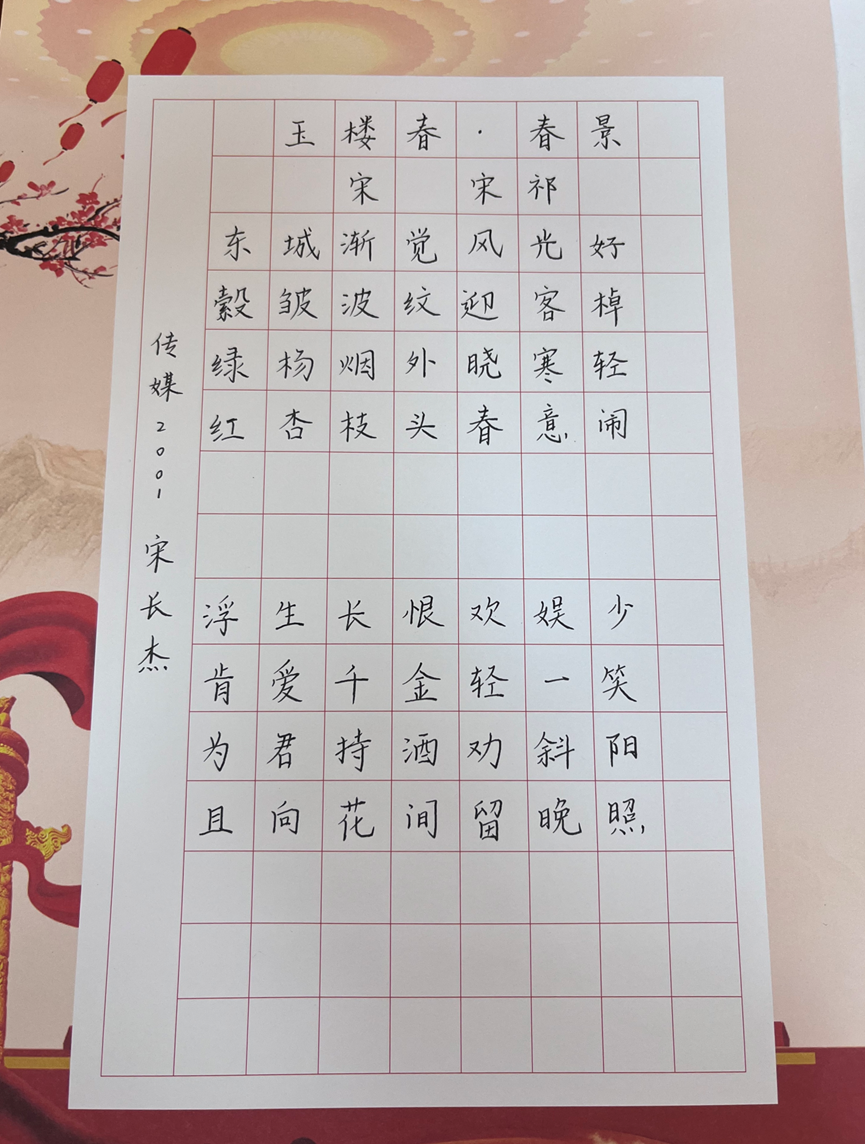 玉楼春·春景
宋 宋祁
东城渐觉风光好
縠皱波纹迎客棹
绿杨烟外晓寒轻
红杏枝头春意闹
浮生长恨欢娱少
肯爱千金轻一笑
为君持酒劝斜阳
且向花间留晚照
传媒2001 宋长杰